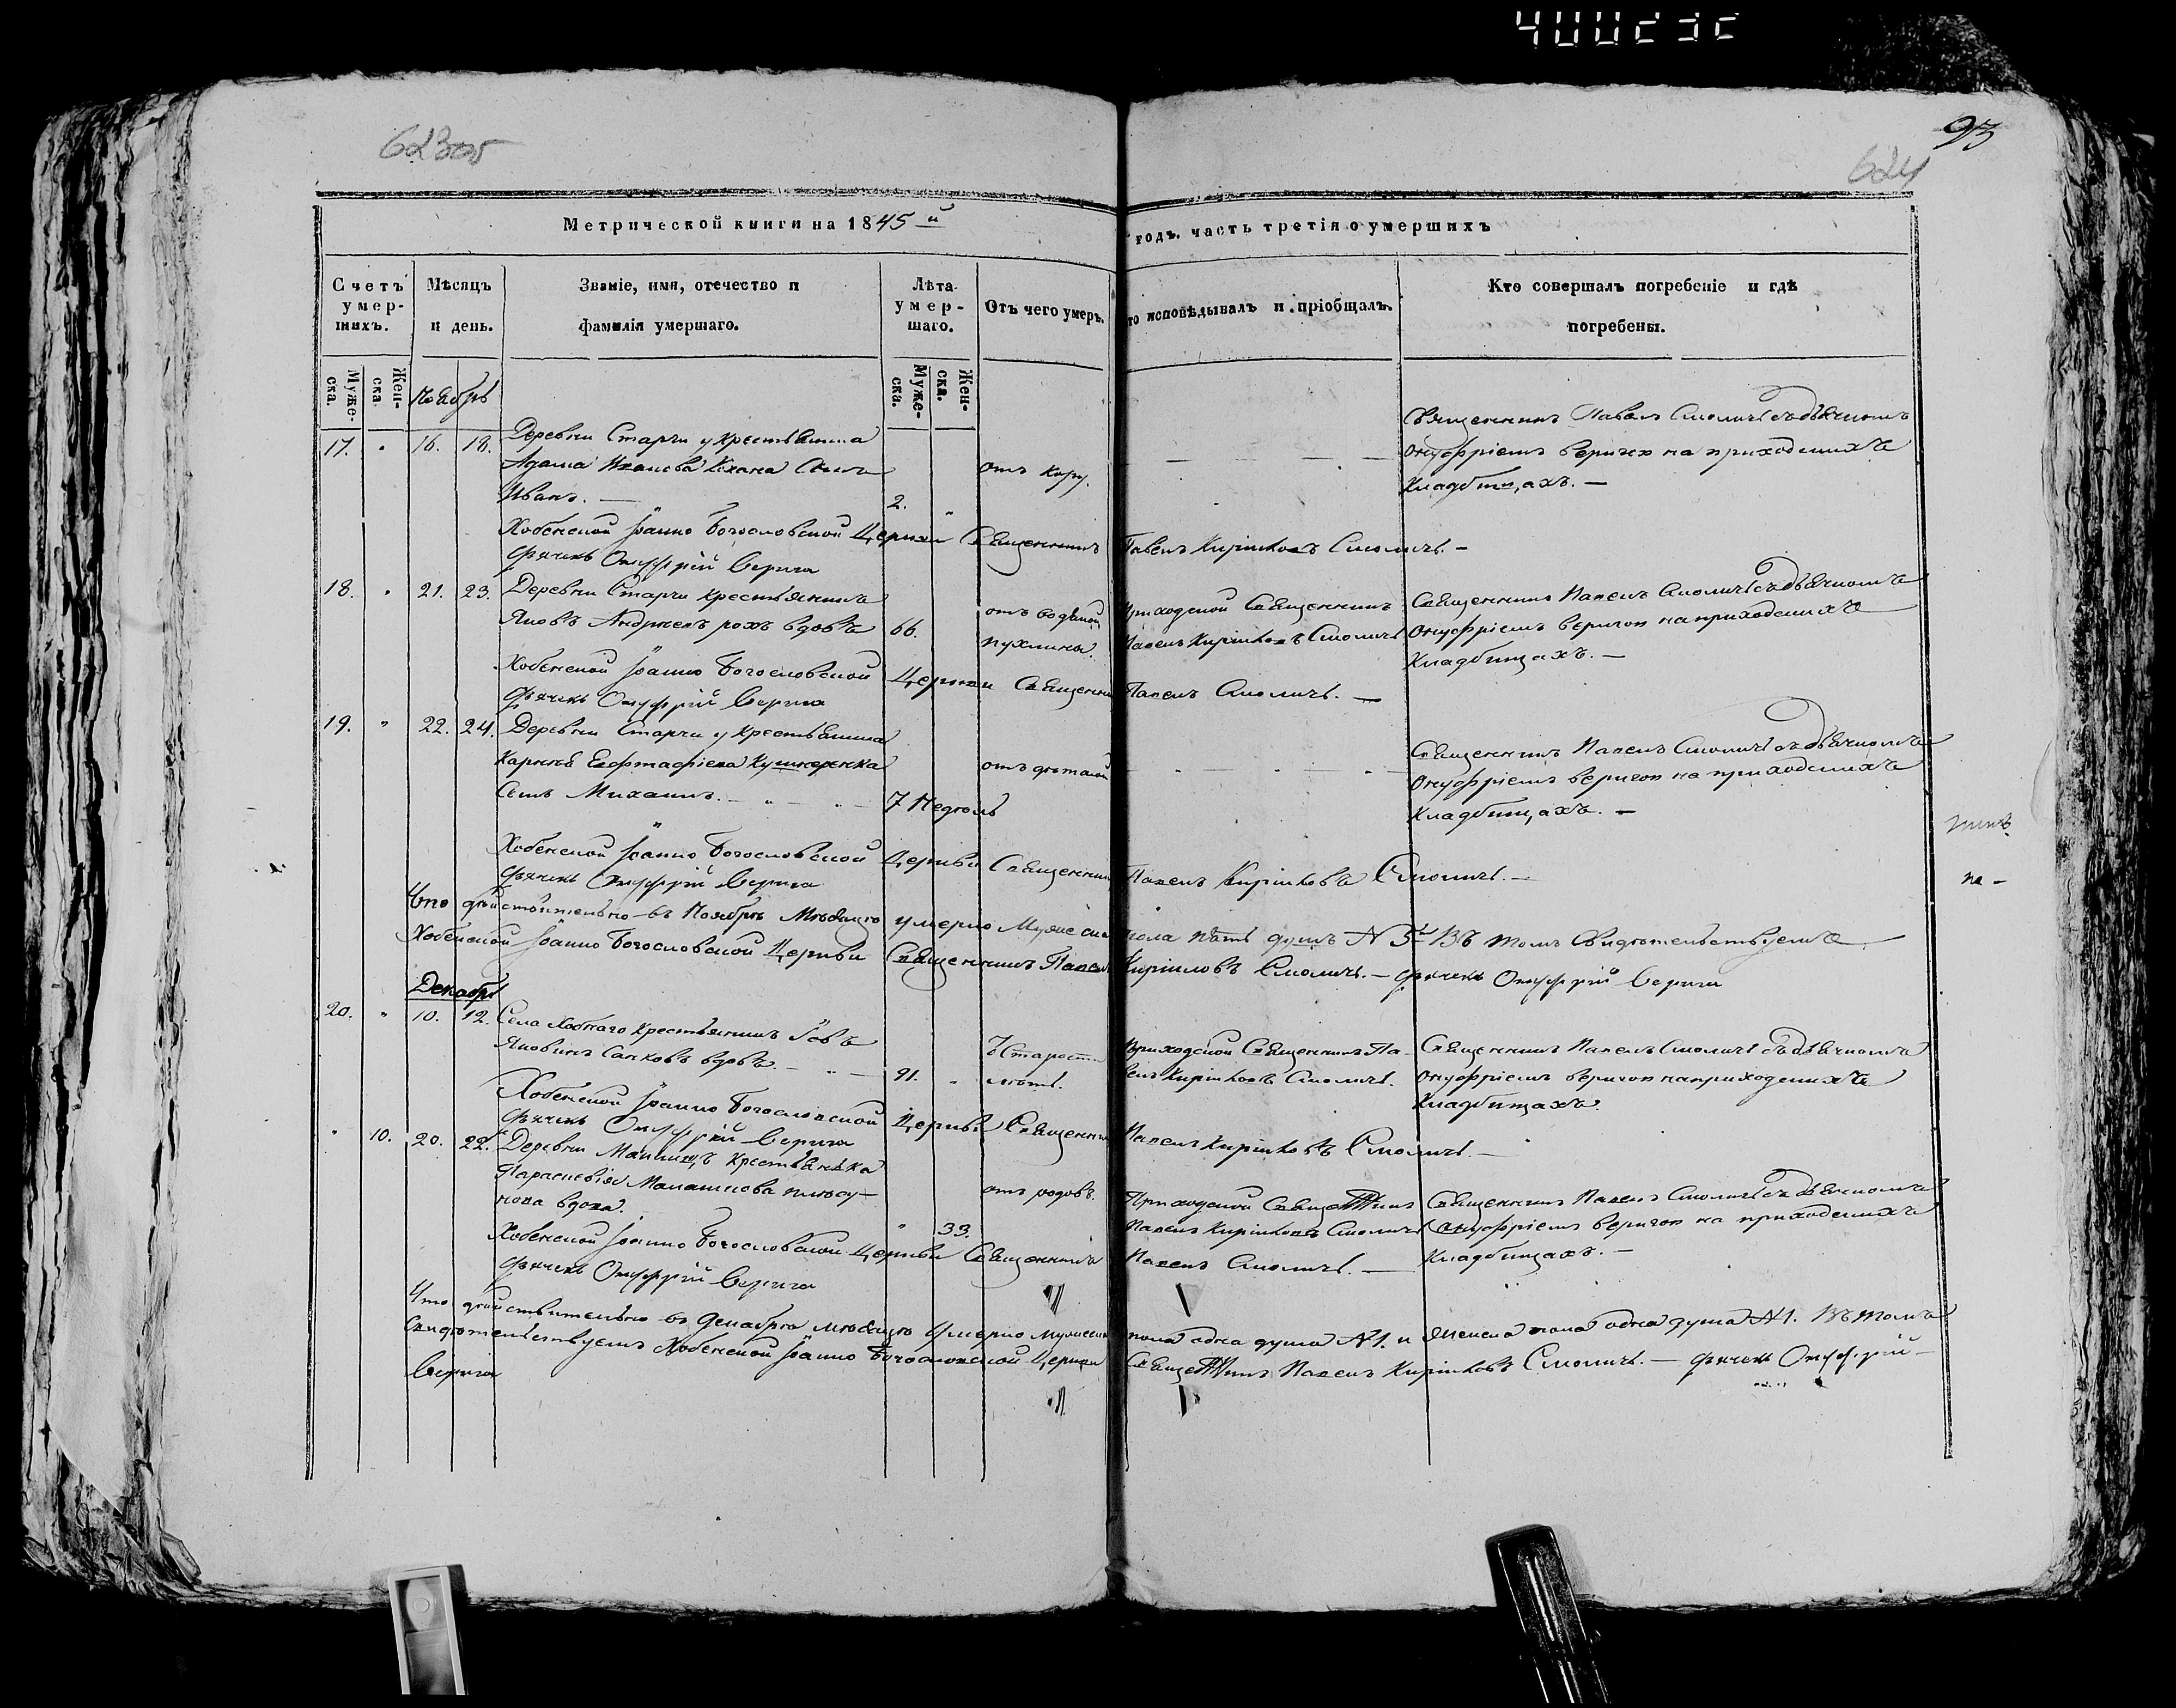 623об
93
624
Метрической книги на 1845й
годъ. часть третія о умершихъ
Счетъ умер-шихъ.
Мѣсяцъ и день.
Званіе, имя, отечество и фамилія умершаго.
Лѣта умер-шаго.
Отъ чего умеръ.
то исповѣдывалъ и пріобщалъ.
Кто совершалъ погребеніе и гдѣ погребены.
Муже-ска.
Жен-ска.
Ноябрь
Муже-ска.
Жен-ска.
17. " 16. 18. Деревни Старчи у крестьянина
Адама Иванова сынъ
Иванъ. —
2. "
отъ кору.
Священникъ Павелъ Смоличъ съ дьячкомъ
Онуфріемъ Веричею на приходскихъ
кладбищахъ. —
Хобенской Іоанно Богословской Церкви Священникъ Павелъ Кириловъ Смоличъ. —
Дьячекъ Онуфрій Верича
18. " 21. 23. Деревни Старчи крестьянинъ
Яковъ вдовъ
66.
отъ водяной
пухлины.
Приходской Священникъ
Павелъ Кириловъ Смоличъ
Священникъ Павелъ Смоличъ съ дьячкомъ
Онуфріемъ Веричою на приходскихъ
кладбищахъ. —
Хобенской Іоанно Богословской Церкви Священник Павелъ Смоличъ. —
Дьячекъ Онуфрій Верича
19. " 22. 24. Деревни Старчи у крестьянина
сынъ Михаилъ. — " — " —
7 Недель
Священникъ Павелъ Смоличъ съ дьячкомъ
Онуфріемъ Веричою на приходскихъ
кладбищахъ. —
Хобенской Іоанно Богословской Церкви Священник Павелъ Кириловъ Смоличъ. —
Дьячекъ Онуфрій Верича
на —
Что действительно въ Ноябрѣ месяцѣ умерло Мужеска пола пять душъ N 5 Въ томъ Свидетельствуемъ
Хобенской Іоанно Богословской Церкви Священникъ Павелъ Кириловъ Смоличъ. — Дьячекъ Онуфрій Верича
Декабрь
20. " 10. 12. Села Хобнаго крестьянинъ
вдовъ. — " —
91. "
въ Старости
летъ.
Приходской Священникъ Па-
велъ Кириловъ Смоличъ.
Священникъ Павелъ Смоличъ съ дьячкомъ
Онуфріемъ Веричою на приходскихъ
кладбищахъ.
Хобенской Іоанно Богословской Церкви Священник Павелъ Кириловъ Смоличъ. —
Дьячекъ Онуфрій Верича
" 10. 20. 22. Деревни крестьянка
вдова.
" 33.
отъ родовъ.
Приходской Священникъ
Павелъ Кириловъ Смоличъ
Священникъ Павелъ Смоличъ съ дьячкомъ
Онуфріемъ Веричою на приходскихъ
кладбищахъ. —
Хобенской Іоанно Богословской Церкви Священникъ Павелъ Смоличъ. —
Дьячекъ Онуфрій Верича
Что действительно въ Декабрѣ месяцѣ умерло мужеска пола одна душа N 1. и женска пола одна душа N 1. Въ томъ
Свидетельствуемъ Хобенской Іоанно Богословской Церкви Священникъ Павелъ Кириловъ Смоличъ. — Дьячекъ Онуфрій —
Верича